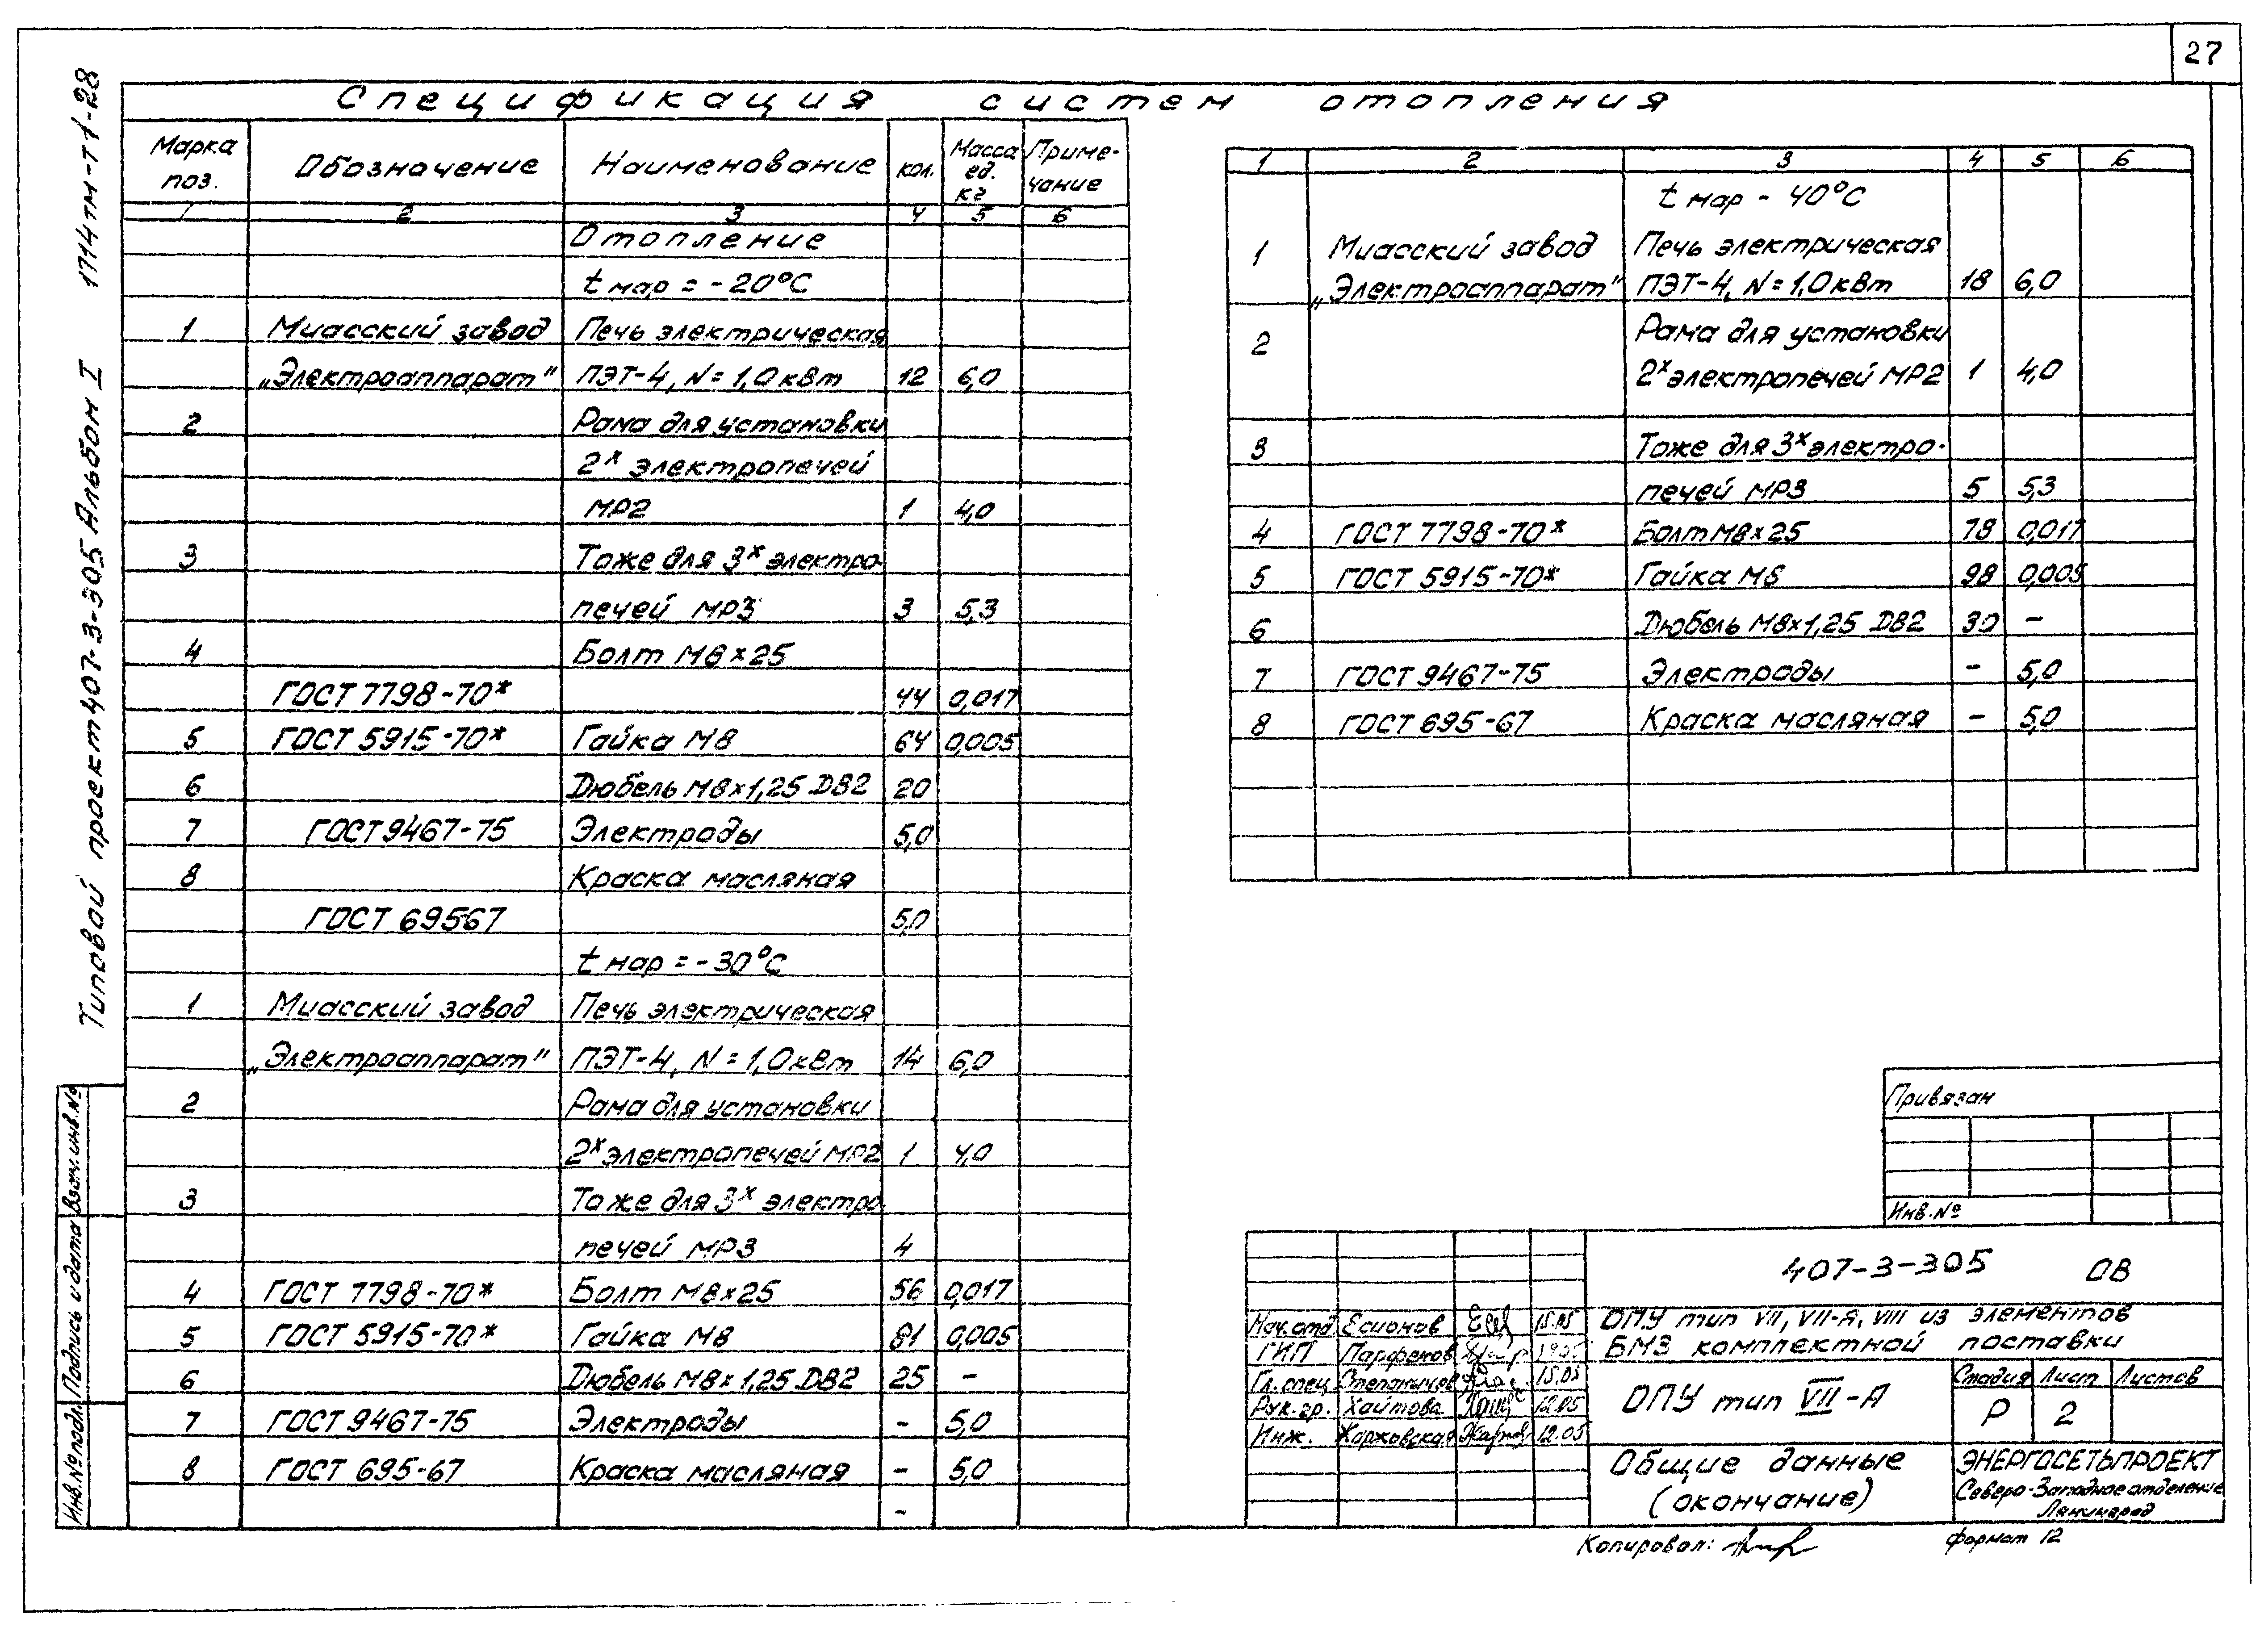 27
Спецификация систем отопления
Марка поз. Обозначение Наименование кол. Масса ед. кг Примечание
1 2 3 4 5 6
Отопление
t нар = -20°С
1 Миасский завод Печь электрическая
„Электроаппарат" ПЭТ-4, N = 1,0 кВт 12 6,0
2 Рама для установки
2х электропечей
МР2 1 4,0
3 Тоже для 3х электро-
печей МР3 3 5,3
4 Болт М8×25
ГОСТ 7798-70* 44 0,017
5 ГОСТ 5915-70* Гайка М8 64 0,005
6 Дюбель М8×1,25 ДВ2 20
7 ГОСТ 9467-75 Электроды 5,0
8 Краска масляная
ГОСТ 69567 5,0
t нар = -30°С
1 Миасский завод Печь электрическая
„Электроаппарат" ПЭТ-4, N = 1,0 кВт 14 6,0
2 Рама для установки
2х электропечей МР2 1 4,0
3 Тоже для 3х электро-
печей МР3 4
4 ГОСТ 7798-70* Болт М8×25 56 0,017
5 ГОСТ 5915-70* Гайка М8 81 0,005
6 Дюбель М8×1,25 ДВ2 25 -
7 ГОСТ 9467-75 Электроды - 5,0
8 ГОСТ 695-67 Краска масляная - 5,0
-
1 2 3 4 5 6
t нар - 40°С
1 Миасский завод Печь электрическая
„Электроаппарат" ПЭТ-4, N = 1,0 кВт 18 6,0
2 Рама для установки
2х электропечей МР2 1 4,0
3 Тоже для 3х электро-
печей МР3 5 5,3
4 ГОСТ 7798-70* Болт М8×25 78 0,017
5 ГОСТ 5915-70* Гайка М8 98 0,005
6 Дюбель М8×1,25 ДВ2 30 -
7 ГОСТ 9467-75 Электроды - 5,0
8 ГОСТ 695-67 Краска масляная - 5,0
Привязан
Инв.№
407-3-305 ОВ
ОПУ тип VII, VII-А, VIII из элементов
БМЗ комплектной поставки
Нач.отд Есионов 15.05
ГИП Парфенов
Гл. спец Степанычев 15.05
Рук. гр. Хаитова 12.05
Инж. Жаржовская 12.05
ОПУ тип VII-А
Стадия Лист Листов
Р 2
Общие данные
(окончание)
ЭНЕРГОСЕТЬПРОЕКТ
Северо-Западное отделение
Ленинград
Копировал:
Формат 12
Типовой проект 407-3-305 Альбом I 1714тм-т1-28
Инв.№ подл. Подпись и дата Взам.инв.№